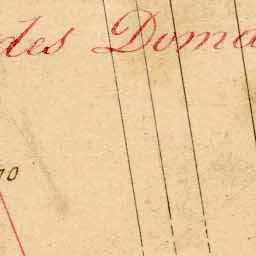 des Doma
70